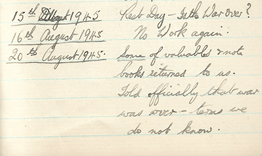 15th August 1945 Rest Day - Is the War over?
16th August 1945 No Work again.
20th August 1945. Some of valuables & note
books returned to us.
Told officially that war
was over - terms we
do not know.